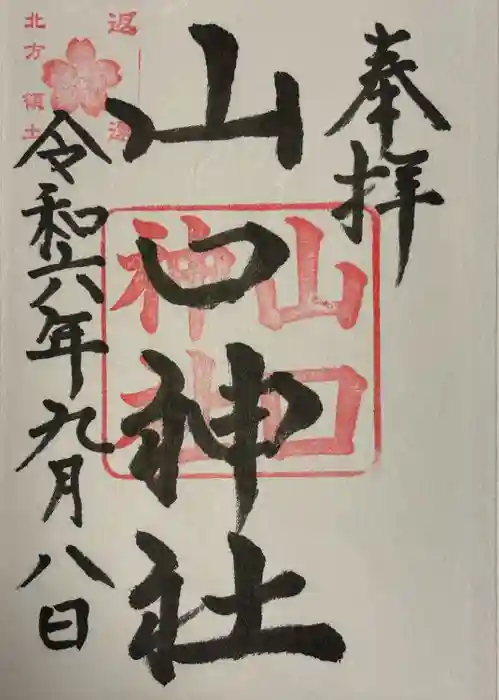 奉拝
山口神社
山口
神社
令和六年九月八日
返還
北方領土